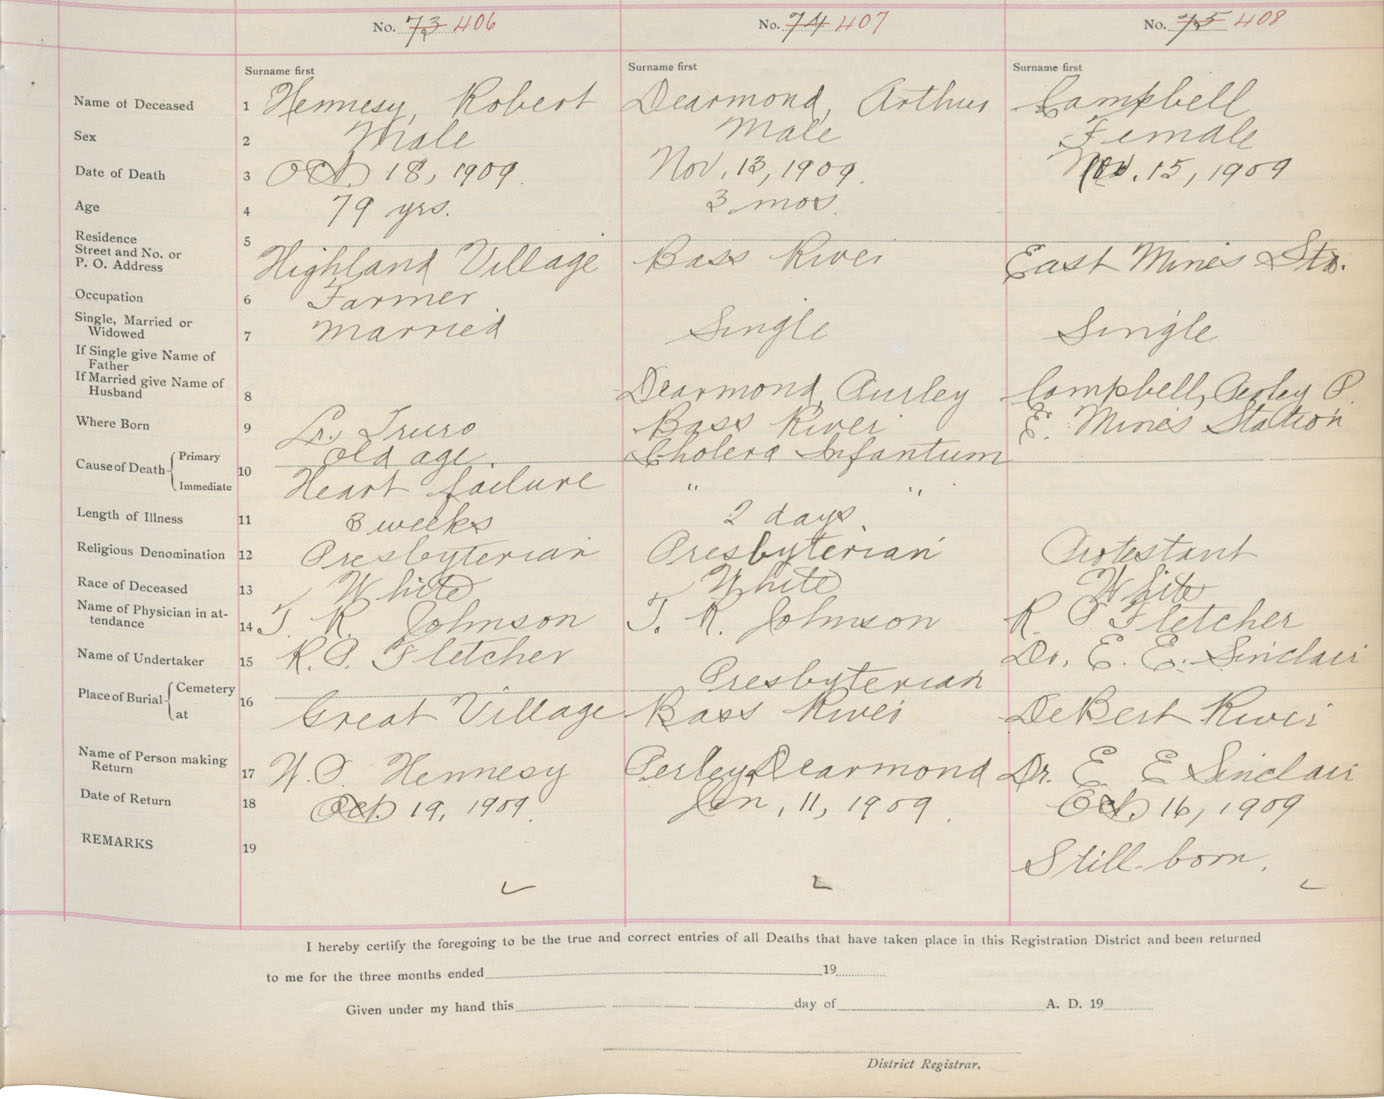 No. 73 406
No. 74 407
No. 75 408
Surname first
Surname first
Surname first
Name of Deceased 1 Hennesy, Robert Dearmond, Arthur Campbell
Sex 2 Male Male Female
Date of Death 3 Oct. 18, 1909. Nov. 13, 1909. Nov. 15, 1909
Age 4 79 yrs. 3 mos.
Residence
Street and No. or
P. O. Address
5 Highland Village Bass River East Mines Sta.
Occupation 6 Farmer
Single, Married or
Widowed
7 Married Single Single
If Single give Name of
Father
If Married give Name of
Husband
8 Dearmond, Campbell, P.
Where Born 9 Lr. Truro Bass River E. Mines Station
Cause of Death Primary old age. Cholera Infantum
10
Immediate Heart failure " "
Length of Illness 11 3 weeks 2 days.
Religious Denomination 12 Presbyterian Presbyterian Protestant
Race of Deceased 13 White White White
Name of Physician in at-
tendance
14 T. R. Johnson T. R. Johnson R. P. Fletcher
Name of Undertaker 15 R. P. Fletcher Dr. E. E. Sinclair
Place of Burial Cemetery Presbyterian
16
at Great Village Bass River DeBert River
Name of Person making
Return
17 W. P. Hennesy Perley Dearmond Dr. E E Sinclair
Date of Return 18 Oct. 19, 1909. Jan, 11, 1909. Oct. 16, 1909
REMARKS 19 Still-born.
I hereby certify the foregoing to be the true and correct entries of all Deaths that have taken place in this Registration District and been returned
to me for the three months ended 19
Given under my hand this day of A. D. 19
District Registrar.